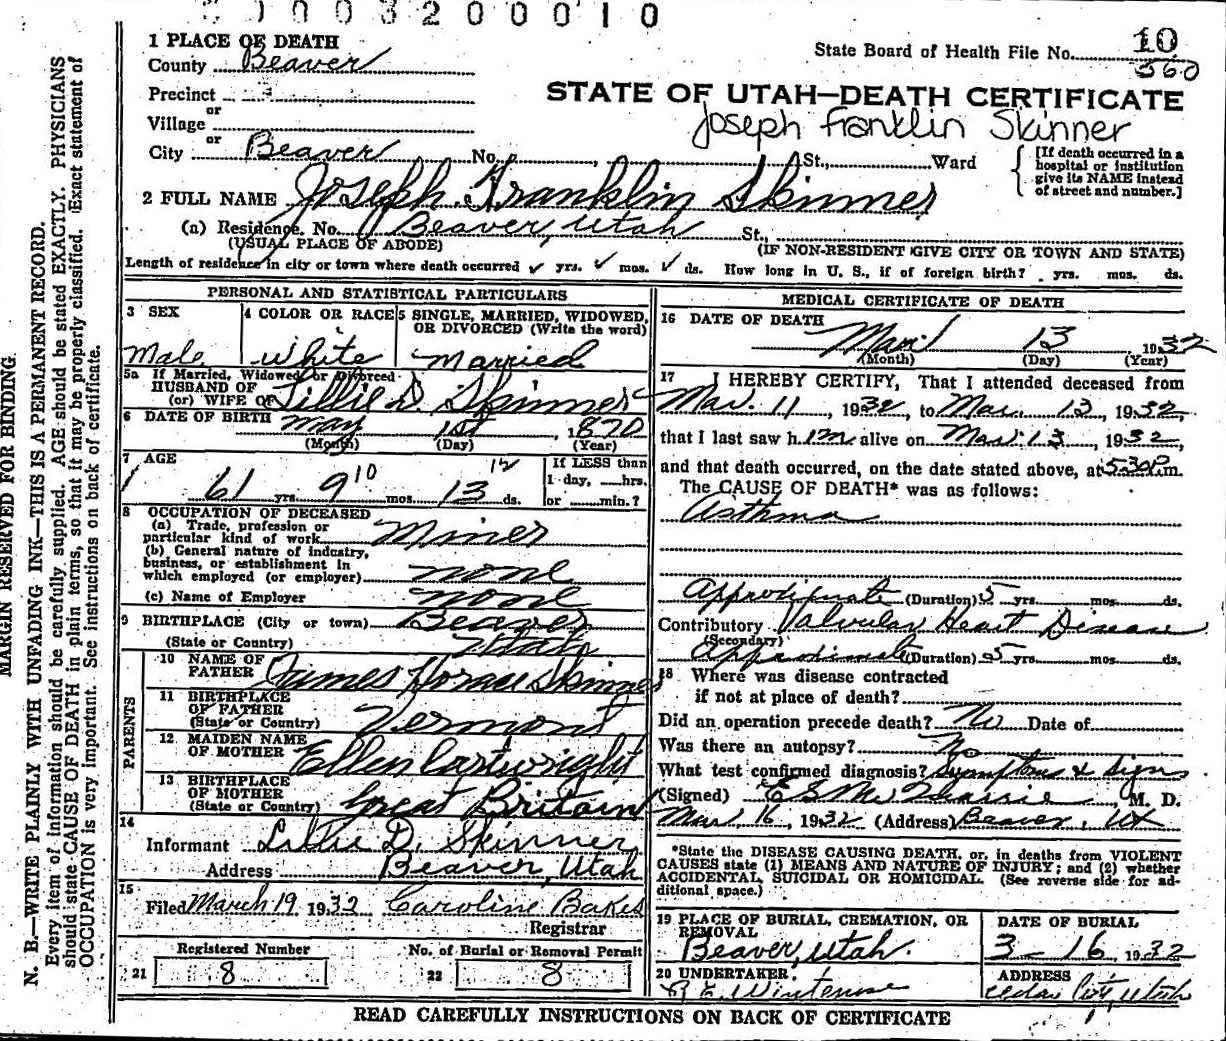 0003200010
1 PLACE OF DEATH
County Beaver
State Board of Health File No. 10
360
Precinct
or
Village
or
City Beaver No. St., Ward
STATE OF UTAH—DEATH CERTIFICATE
Joseph Franklin Skinner
[If death occurred in a hospital or institution give its NAME instead of street and number.]
2 FULL NAME Joseph Franklin Skinner
(a) Residence. No. Beaver, Utah St.,
(USUAL PLACE OF ABODE) (IF NON-RESIDENT GIVE CITY OR TOWN AND STATE)
Length of residence in city or town where death occurred ✓ yrs. ✓ mos. ✓ ds. How long in U. S., if of foreign birth? yrs. mos. ds.
PERSONAL AND STATISTICAL PARTICULARS
3 SEX
Male
4 COLOR OR RACE
White
5 SINGLE, MARRIED, WIDOWED, OR DIVORCED (Write the word)
Married
5a If Married, Widowed or Divorced
HUSBAND OF
(or) WIFE OF Lillie D. Skinner
6 DATE OF BIRTH May 1st, 1870
(Month) (Day) (Year)
7 AGE
61 yrs. 9 10 mos. 13 12 ds.
If LESS than
1 day, hrs.
or min.?
8 OCCUPATION OF DECEASED
(a) Trade, profession or particular kind of work Miner
(b) General nature of industry, business, or establishment in which employed (or employer) none
(c) Name of Employer none
9 BIRTHPLACE (City or town) Beaver
(State or Country) Utah
PARENTS
10 NAME OF FATHER James Horace Skinner
11 BIRTHPLACE OF FATHER (State or Country) Vermont
12 MAIDEN NAME OF MOTHER Ellen Cartwright
13 BIRTHPLACE OF MOTHER (State or Country) Great Britain
14
Informant Lillie D. Skinner
Address Beaver, Utah
15
Filed March 19 1932 Caroline Bakes
Registrar
Registered Number
21 8
No. of Burial or Removal Permit
22 8
MEDICAL CERTIFICATE OF DEATH
16 DATE OF DEATH
Mar 13 1932
(Month) (Day) (Year)
17 I HEREBY CERTIFY, That I attended deceased from
Mar. 11, 1932, to Mar. 13, 1932,
that I last saw him alive on Mar. 13, 1932,
and that death occurred, on the date stated above, at 5:30 P.m.
The CAUSE OF DEATH* was as follows:
Asthma
Approximate (Duration) 5 yrs. mos. ds.
Contributory Valvular Heart Disease
(Secondary)
Approximate (Duration) 5 yrs. mos. ds.
18 Where was disease contracted
if not at place of death?
Did an operation precede death? No Date of
Was there an autopsy? No
What test confirmed diagnosis? Symptoms & Signs
(Signed) E S M., M. D.
Mar. 16, 1932 (Address) Beaver, Ut
*State the DISEASE CAUSING DEATH, or, in deaths from VIOLENT
CAUSES state (1) MEANS AND NATURE OF INJURY; and (2) whether
ACCIDENTAL, SUICIDAL OR HOMICIDAL. (See reverse side for additional space.)
19 PLACE OF BURIAL, CREMATION, OR REMOVAL
Beaver, Utah.
DATE OF BURIAL
3-16 1932
20 UNDERTAKER
ADDRESS
Cedar City, Utah
READ CAREFULLY INSTRUCTIONS ON BACK OF CERTIFICATE
MARGIN RESERVED FOR BINDING.
N. B.—WRITE PLAINLY WITH UNFADING INK—THIS IS A PERMANENT RECORD.
Every item of information should be carefully supplied. AGE should be stated EXACTLY. PHYSICIANS
should state CAUSE OF DEATH in plain terms, so that it may be properly classified. Exact statement of
OCCUPATION is very important. See instructions on back of certificate.